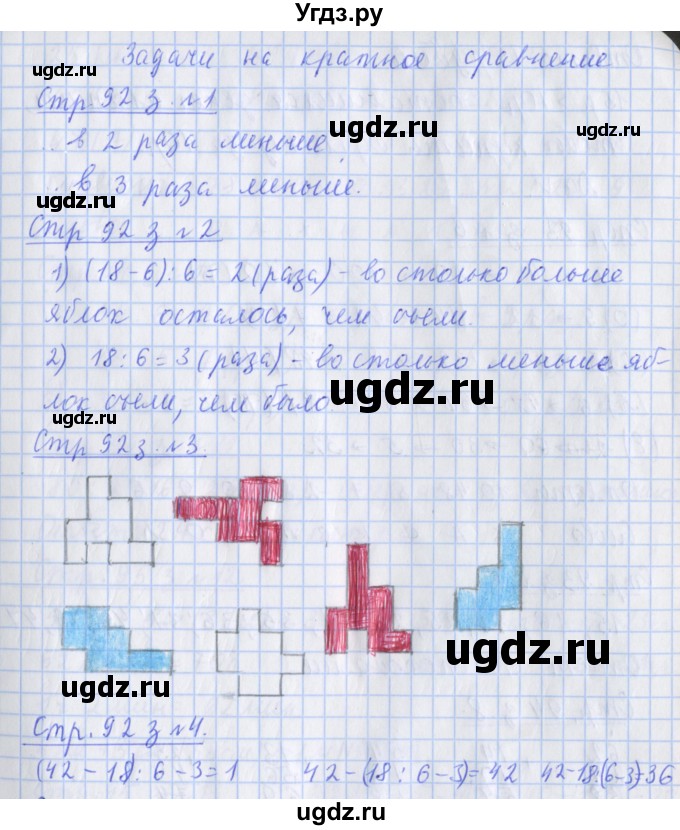 Угдз.ру
Задачи на кратное сравнение
ugdz.ru
Стр. 92 з. №1
ugdz.ru
ugdz.ru
.. в 2 раза меньше
.. в 3 раза меньше.
ugdz.ru
Стр 92 з №2
1) (18-6):6=2(раза)-во столько больше
яблок осталось, чем съели.
ugdz.ru
2) 18:6=3(раза)-во столько меньше яб-
ugdz.ru
лок съели, чем было
ugdz.ru
Стр 92 з. №3.
ugdz.ru
ugdz.ru
Стр. 92 з №4.
(42-18):6-3=1 42-(18:6-3)=42 42-18:(6-3)=36
ugdz.ru
ugdz.ru
ugdz.ru